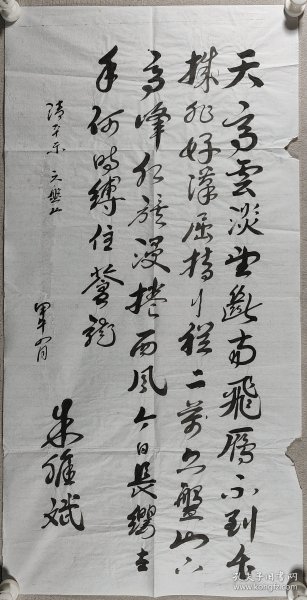 天高雲淡望斷南飛雁不到長
城非好漢屈指行程二萬六盤山上
高峰红旗漫捲西風今日長纓在
手何時縛住蒼龍
清平乐 六盘山
甲午
孔夫子旧书网